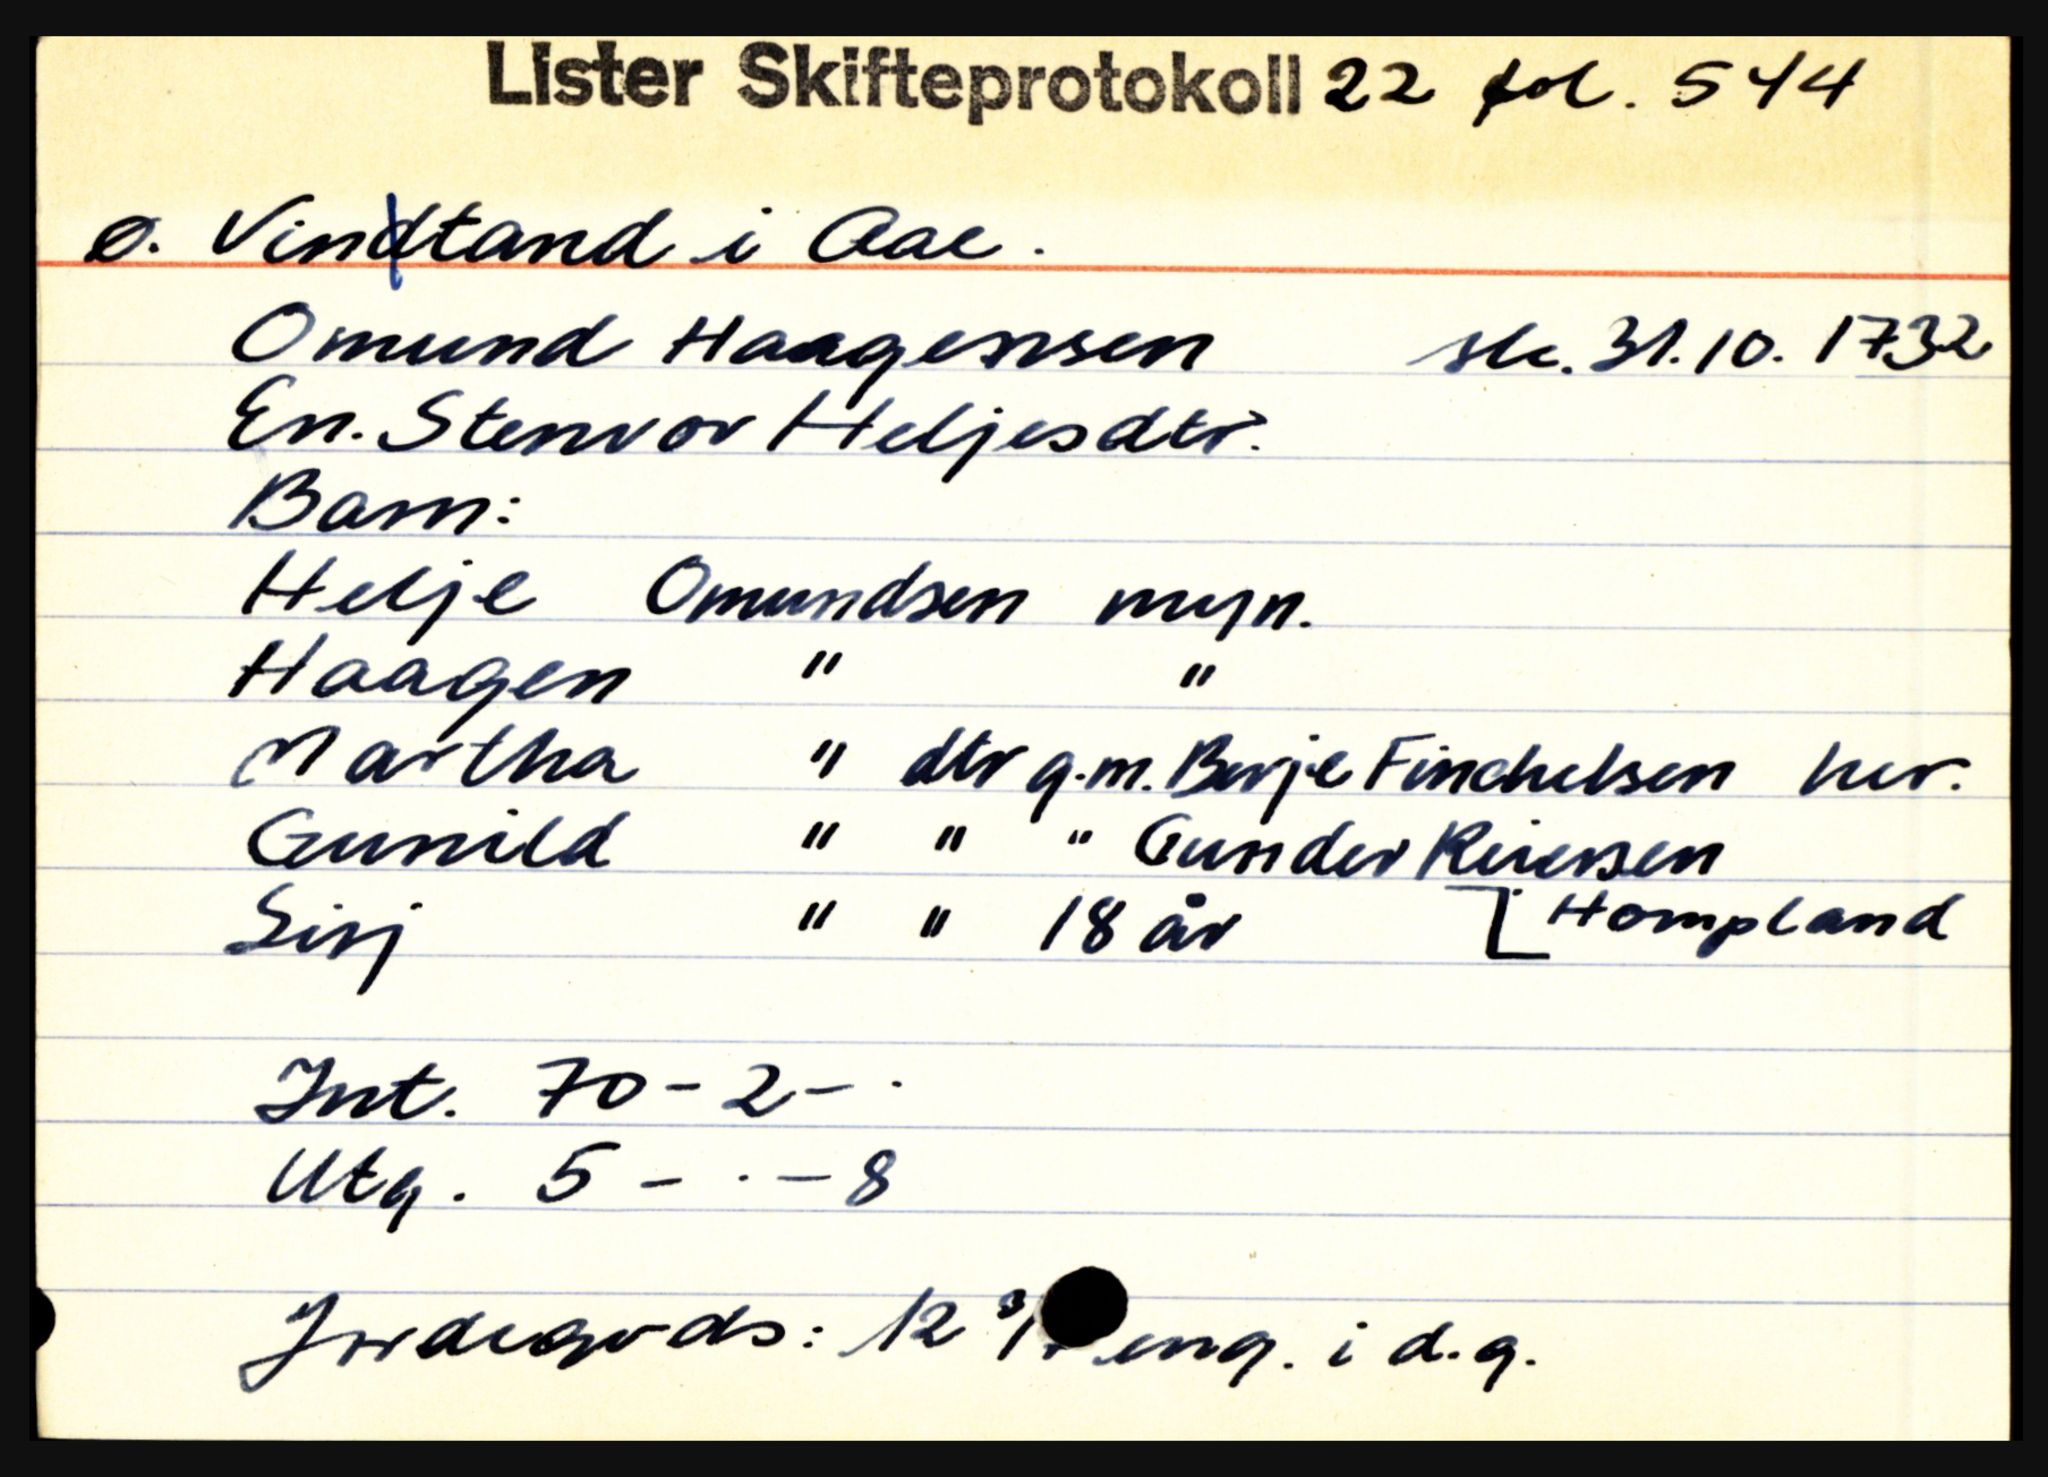 Lister Skifteprotokoll 22 fol. 544
ø. Vindtand i Aae.
Omund Haagensen sk. 31.10.1732
En. Stenvor Heljesdtr.
Barn:
Helje Omundsen myn.
Haagen " "
Martha " dtr g.m. Berje Finchelsen her.
Gunild " " " Gunder Reiersen
Sirj " " 18 år [Hompland
Int. 70-2-·
Utg. 5-·-8
Jordegods: 12 eng. i d.g.